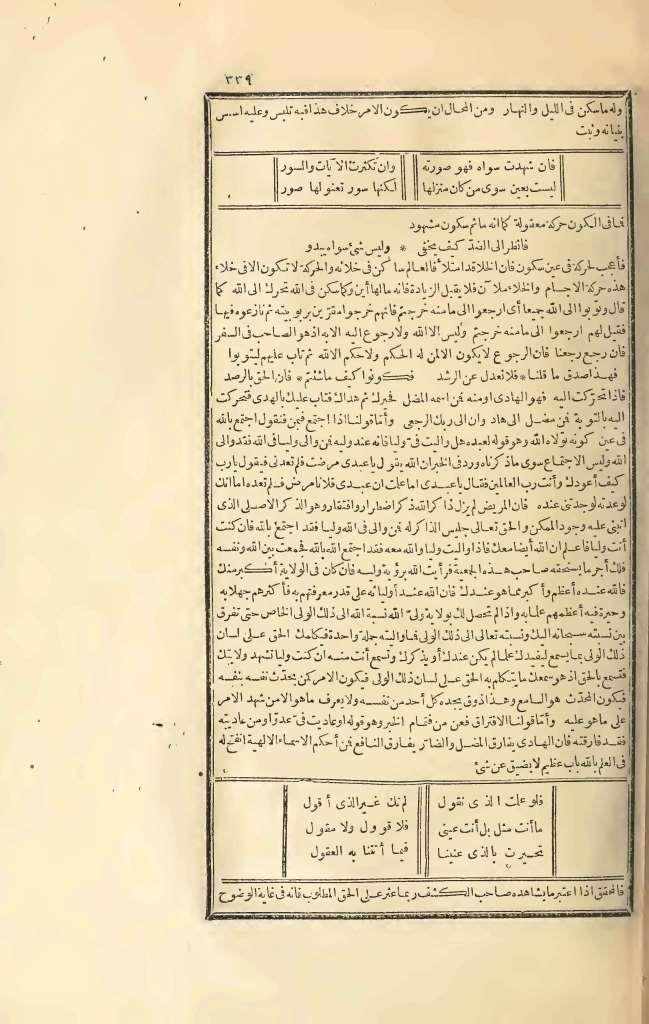 ٣٣٩
وله ما سكن فى الليل والنهار ومن المحال ان يكون الامر خلاف هذا فيه تلبس وعليه اسس
بنيانه وثبت
فان شهدت سواه فهو صورته وان تكثرت الآيات والسور
ليست بعين سوى من كان منزلها لكنها سور تعنو لها صور
فما فى الكون حركة معقولة كما انه ما ثم سكون مشهود
فانظر الى الضد كيف يخفى * وليس شئ سواه يبدو
فأعجب لحركة فى عين سكون فان الخلا قد امتلأ فالعالم ساكن فى خلائه والحركة لا تكون الا فى خلاء
هذه حركة الاجسام والخلاء ملآن فلا يقبل الزيادة فانه ما لها أين وكما سكن فى الله تحرك الى الله كما
قال وتوبوا الى الله جميعا أى ارجعوا الى ما منه خرجتم فانهم خرجوا مقرّين بربوبيته ثم نازعوه فيها
فقيل لهم ارجعوا الى ما منه خرجتم وليس الا الله ولا رجوع اليه الا به اذ هو الصاحب فى السفر
فان رجع رجعنا فان الرجوع لا يكون الا لمن له الحكم ولا حكم الا لله ثم تاب عليهم ليتوبوا
فهذا صدق ما قلنا * فلا تعدل عن الرشد فكونوا كيف ما شئتم * فان الحق بالرصد
فاذا تحرّكت اليه فهو الهادى اومنه فمن اسمه المضل فحيرك ثم هداك فتاب عليك بالهدى فتحركت
اليه بالتوبة فمن مضل الى هاد وان الى ربك الرجعى وأمّا قولنا اذا اجتمع فبمن فنقول اجتمع بالله
فى عين كونه تولاه الله وهو قوله لعبده هل واليت فىّ وليا فانه عند وليه فمن والى وليا فى الله فقد والى
الله وليس الاجتماع سوى ما ذكرناه ورد فى الخبر ان الله يقول يا عبدى مرضت فلم تعدنى فيقول يا رب
كيف أعودك وأنت رب العالمين فقال يا عبدى اما علمت ان عبدى فلانا مرض فلم تعده اما انك
لو عدته لوجدتنى عنده فان المريض لم يزل ذاكر الله ذكر اضطرار وافتقار وهو الذكر الاصلى الذى
انبنى عليه وجود الممكن والحق تعالى جليس الذاكر له فمن والى فى الله وليا فقد اجتمع بالله فان كنت
أنت وليا فاعلم ان الله أيضا معك فاذا واليت وليا والله معه فقد اجتمع الله بالله فجمعت بين الله ونفسه
فلك أجر ما يستحقه صاحب هذه الجمعية فرأيت الله برؤية وليه فان كان فى الولاية أكبر منك
فالله عنده أعظم وأكبر مما هو عندك فان الله عند أوليائه على قدر معرفتهم به فأكثرهم جهلا به
وحيرة فيه أعظمهم علما به واذا لم تحصل لك بولاية ولىّ الله نسبة الله الى ذلك الولى الخاص حتى تفرق
بين نسبته سبحانه اليك ونسبته تعالى الى ذلك الولى فما واليته جملة واحدة فيكلمك الحق على لسان
ذلك الولى بما يسمع ليفيدك علما لم يكن عندك أو يذكرك وتسمع أنت منه ان كنت وليا تشهد ولايتك
فتسمع بالحق اذ هو سمعك ما يتكلم به الحق على لسان ذلك الولى فيكون الامر كمن يحدّث نفسه بنفسه
فيكون المحدّث هو السامع وهذا ذوق يجده كل أحد من نفسه ولا يعرف ما هو الا من شهد الامر
على ما هو عليه وأمّا قولنا الافتراق فعن من فتمام الخبر وهو قوله او عاديت فىّ عدوّا ومن عاديته
فقد فارقته فان الهادى يفارق المضل والضارّ يفارق النافع فمن أحكم الاسماء الالهية انفتح له
فى العلم بالله باب عظيم لا يضيق عن شئ
فلو علمت الذى نقول لم تك غير الذى أقول
ما أنت مثل بل أنت عينى فلا قوول ولا مقول
تحيرت بالذى عنينا فيما أتتنا به العقول
فالمحقق اذا اعتبر ما يشاهده صاحب الكشف ربما عثر على الحق المطلوب فانه فى غاية الوضوح